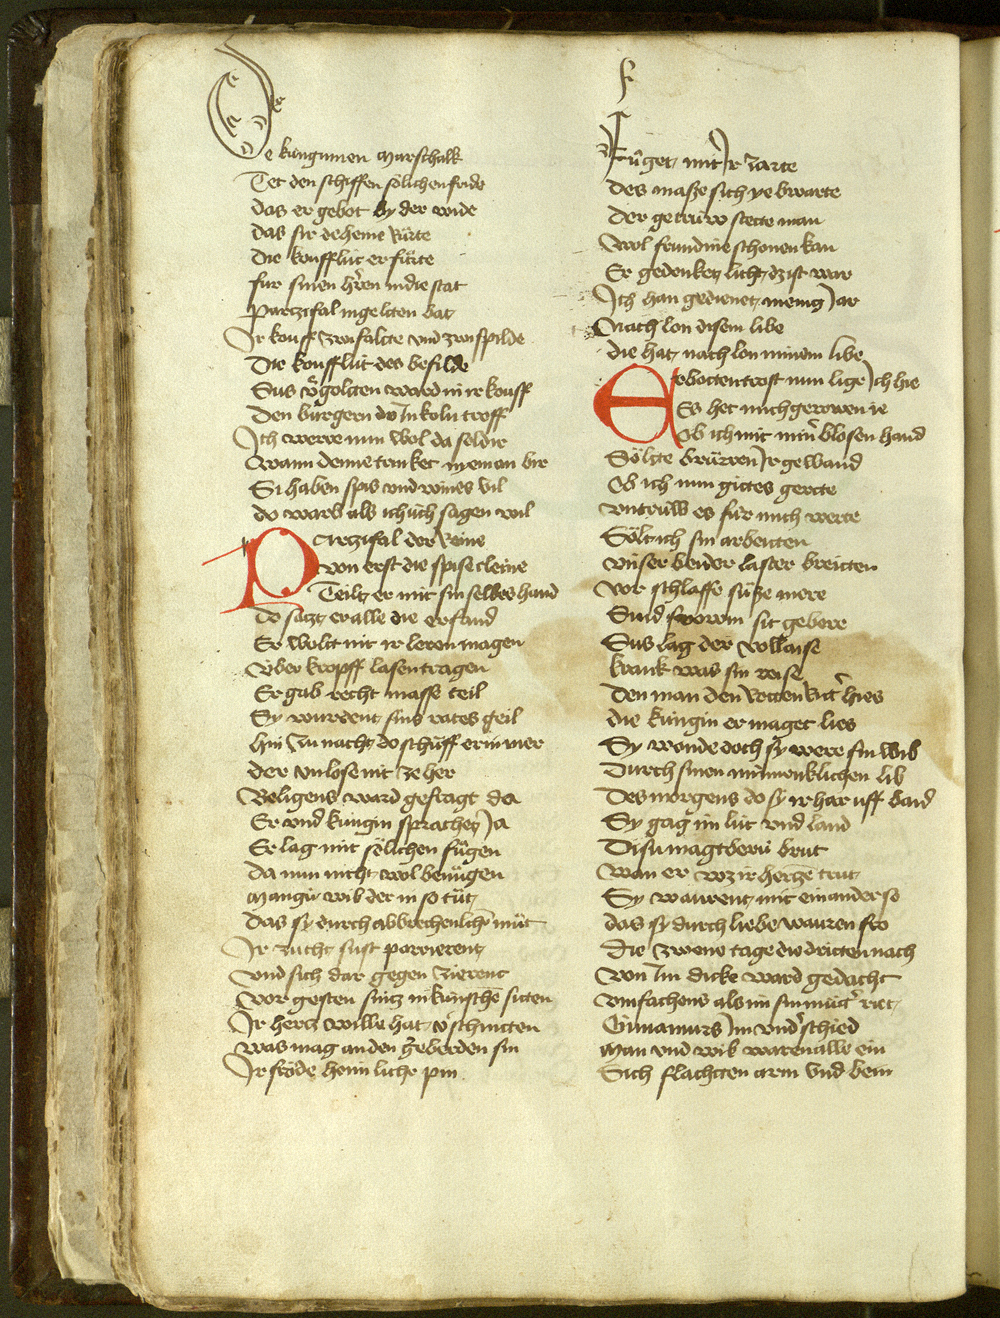 De kúnginnen marschalk
Tet den schiffen sölichen fride
das er gebot by der wide
das sir deheine rúrte
die koufflút er fúrte
für sinen hren in die stat
parczifal in gelten bat
Ir kouff zwifalte vnd zwispilde
Die koufflút des befilde
Sus vgolten ward in ir kouff
Den búrgern do in koln troff
Ich were nun wol da soldir
Wann denne trinket nyeman bir
Si haben spis vnd wines vil
do warb als ich úch sagen wil
Parczifal der reine
von erst die spise cleine
Teilt er mit sin selbes hand
Do satzt er alle die er fand
Er wolt nit ir leren magen
Vber kropff lasen tragen
Er gab recht masse teil
Sy wurdent sins rates geil
hin zu nacht do schuff er in mer
der vnlose nit ze her
Beligens ward gefragt da
Er vnd kúngin sprachen Ja
Er lag mit sölichen fúgen
da nun nicht wol benúgen
mangú wib der in so tút
Das sy durch abbrechenlichn mút
Ir zucht sust parrierent
vnd sich dar gegen zierent
vor gesten sint in kúnsche sitten
Ir hertz wille hat vschnitten
was mag an den geberden sin
Ir fröde heimliche pin
Frúget mit Ir zarte
Des masze sich ye bewarte
Der getrúw stette man
Wol frundine schonen kan
Er gedenket licht dz ist war
Ich han gedienet menig Jar
Nach lon disem libe
die hat nach lon minem libe
Gebotten trost nun lige Ich hie
Es het mich gerowen ie
Ob ich mit min blosen hand
Sölte brúrren Ir gewand
Ob ich nun gittes gerte
vntrúw es fúr mich werte
Sölt ich sin arbeitten
vnser beider laster breitten
vor schlaffe súsze mere
Sind frowen sit gebere
Sus lag der vollaise
krank was sin reise
Den man den rotten ritt hies
die kúngin er maget lies
Sy wonde doch sy were sin wib
Durch sinen minnenklichen lib
Des morgens do sy ir har uff band
Sy gab im lút vnd land
Disu magtberu brut
Wan er wz ir hertze trut
Sy waurent mit einander so
das sy durch liebe wauren fro
Die zwene tage die dritten nach
von Im dicke ward gedacht
vmfachens als im sin mút riet
Gurnamurs Im vnd schied
man vnd wib waren alle ein
Sich flachten arm vnd bein